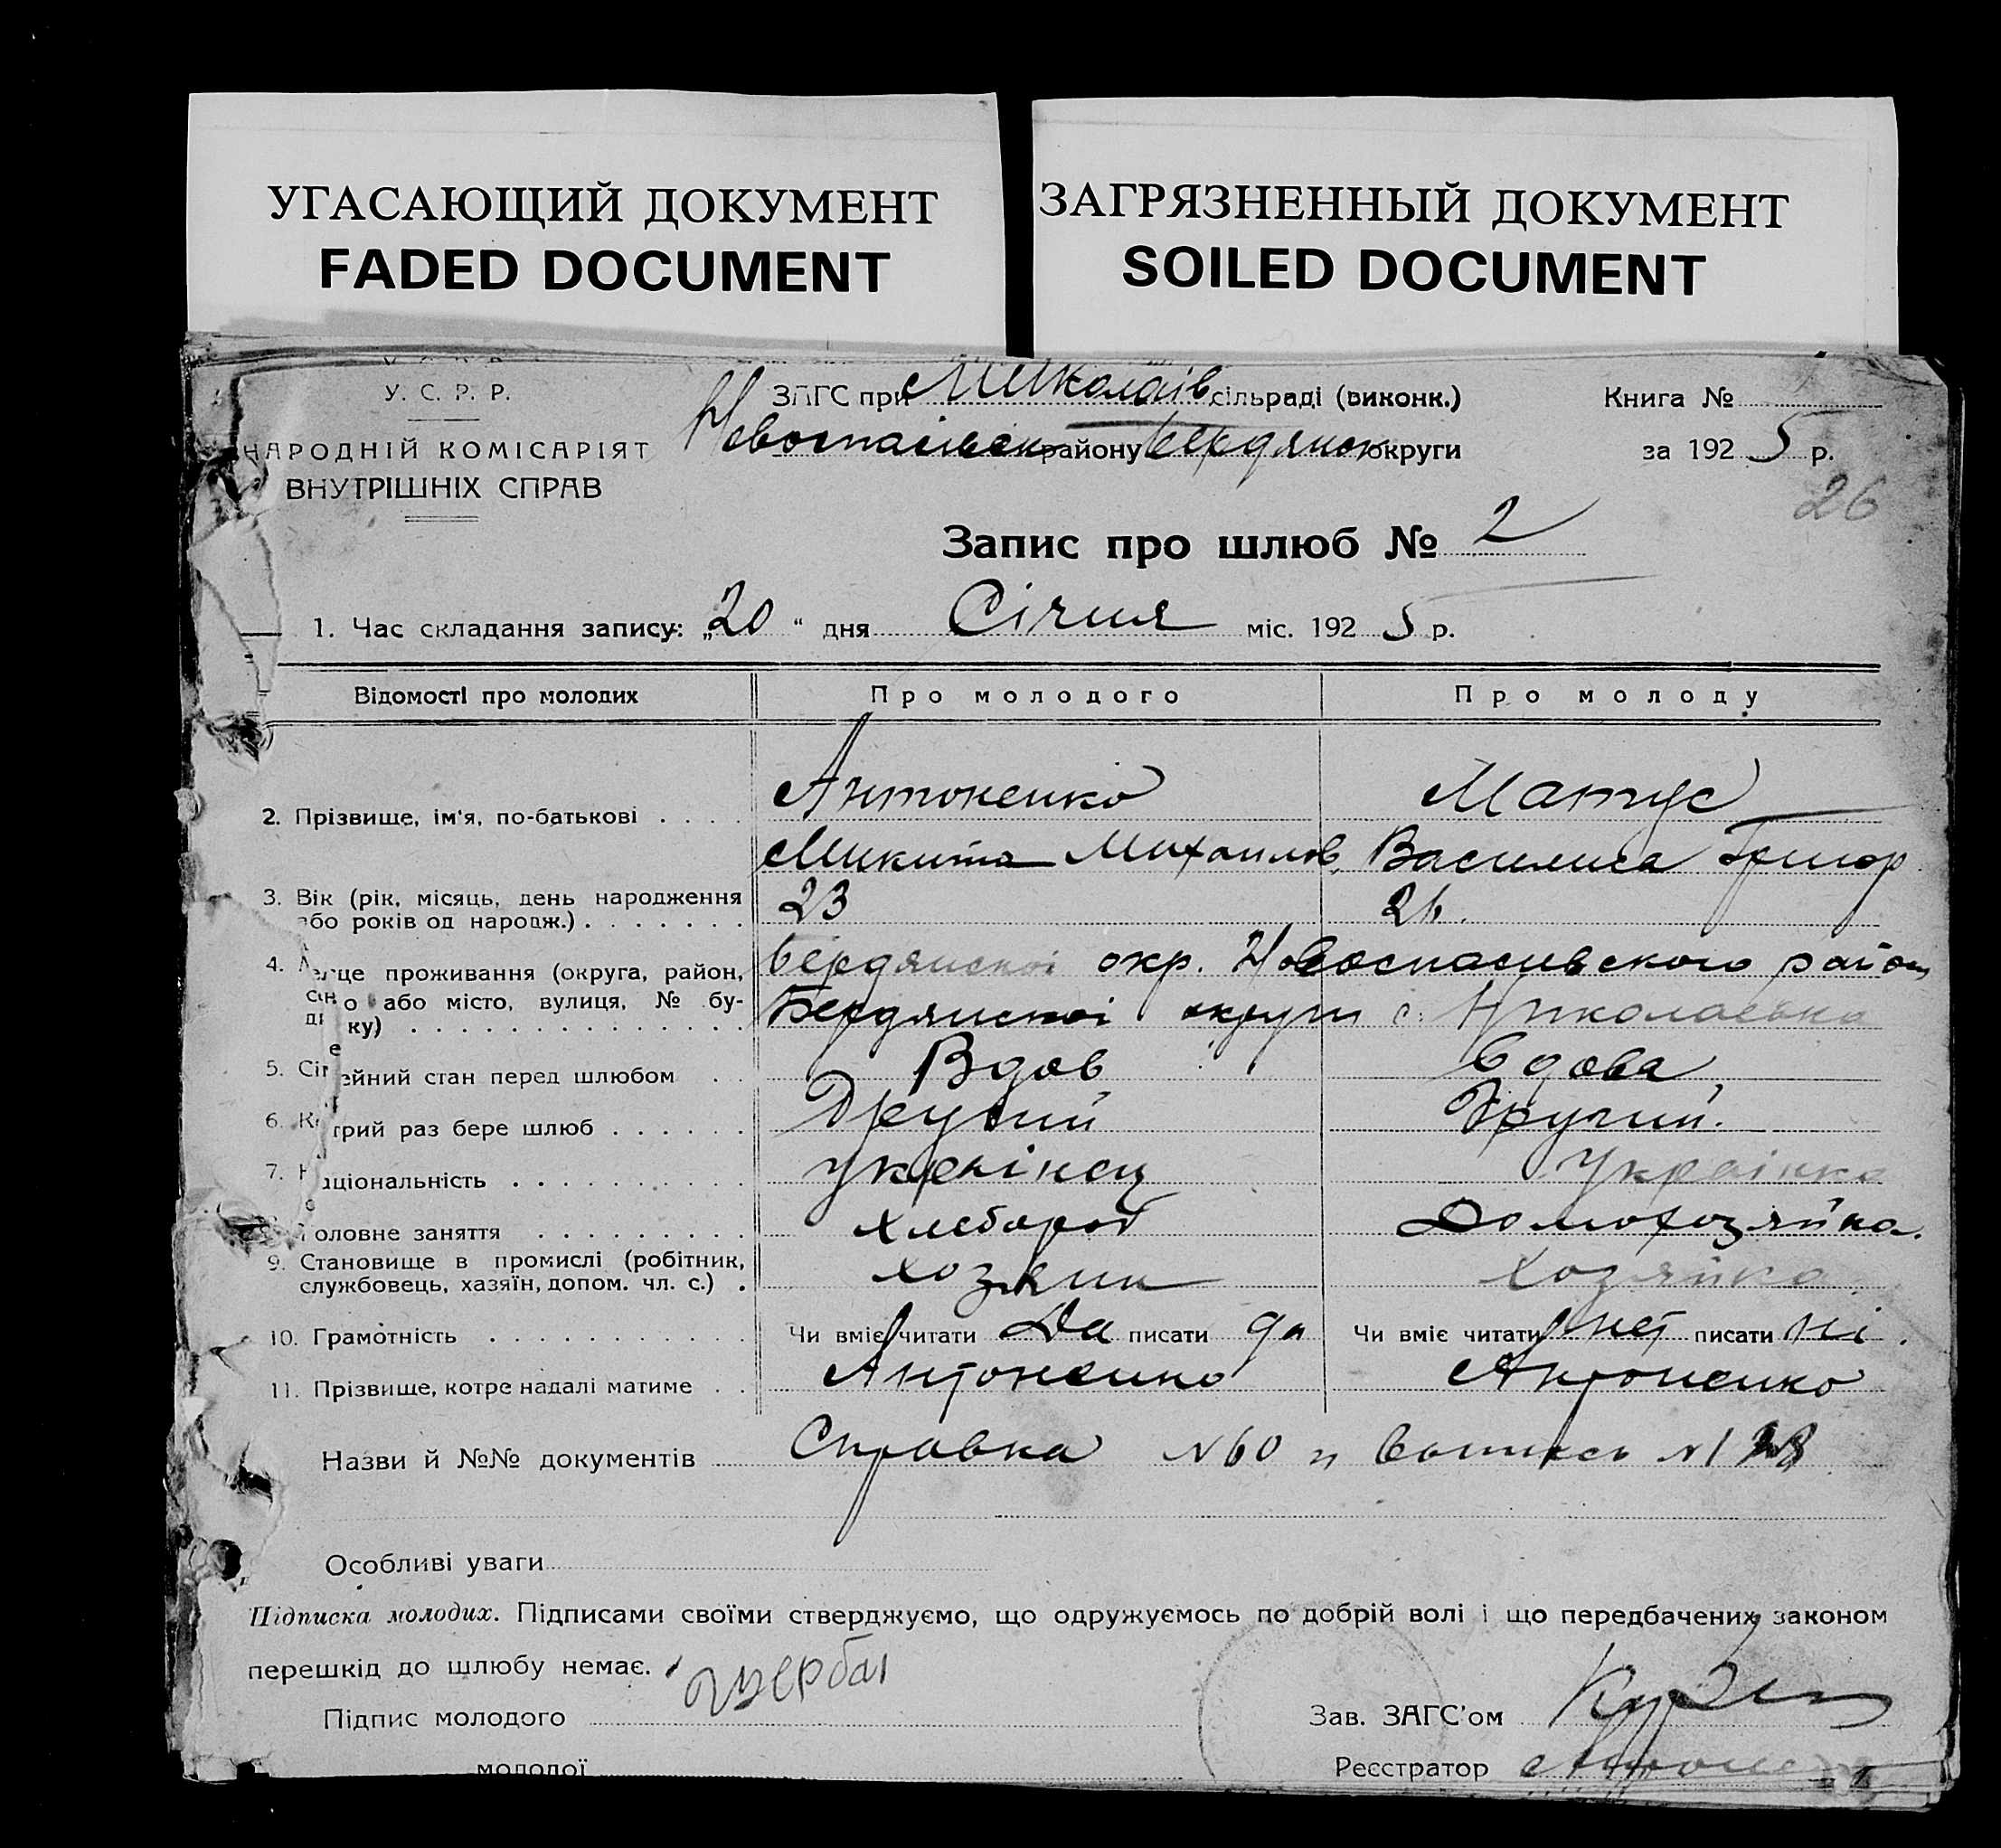 УГАСАЮЩИЙ ДОКУМЕНТ
FADED DOCUMENT
ЗАГРЯЗНЕННЫЙ ДОКУМЕНТ
SOILED DOCUMENT
У. С. Р. Р.
НАРОДНІЙ КОМІСАРІЯТ
ВНУТРІШНІХ СПРАВ
ЗАГС при Миколаїв сільраді (виконк.)
Новоспасівськ району Бердянськ округи
Книга №
за 1925 р.
26
Запис про шлюб № 2
1. Час складання запису: „20“ дня Січня міс. 1925 р.
Відомості про молодих Про молодого Про молоду
2. Прізвище, ім'я, по-батькові . . . . Антоненко Матус
Микита Михаилов. Василиса Григор
3. Вік (рік, місяць, день народження 23 26.
або років од народж.) . . . . . . .
4. це проживання (округа, район, Бердянскої окр. Новоспасивского район
о або місто, вулиця, № бу- Бердянскої округи с. Николаевка
ку) . . . . . . . . . . . . .
5. Сі ейний стан перед шлюбом . . Вдов Вдова
6. К трий раз бере шлюб . . . . . . Другий Другий.
7. Національність . . . . . . . . . . українец Українка
Головне заняття . . . . . . . . . хлебороб Домохозяйка.
9. Становище в промислі (робітник, хозяин Хозяйка
службовець, хазяїн, допом. чл. с.) .
10. Грамотність . . . . . . . . . . . Чи вміє читати Да писати да Чи вміє читати нет писати ні.
11. Прізвище, котре надалі матиме . . Антоненко Антоненко
Назви й №№ документів Справка №60 и Выпись №1
Особливі уваги
Підписка молодих. Підписами своїми стверджуємо, що одружуємось по добрій волі і що передбачених законом
перешкід до шлюбу немає.
Підпис молодого
Зав. ЗАГС'ом
молодої
Реєстратор